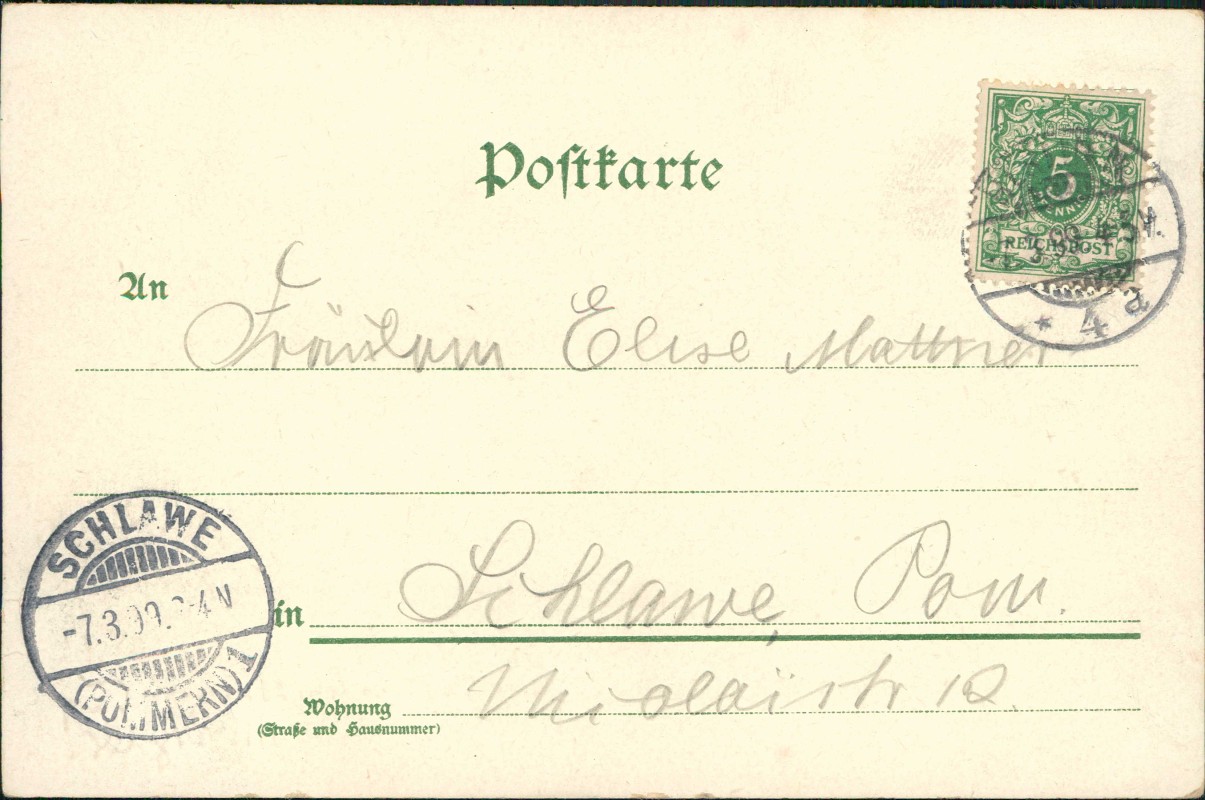 Postkarte
5
PFENNIG
REICHSPOST
* 4 a
An
Fräulein Elise Mattner
SCHLAWE
-7.3.99. 3-4 N
(POMMERN) 1
in Schlawe, Pom.
Wohnung Nicolaistr 12.
(Straße und Hausnummer)